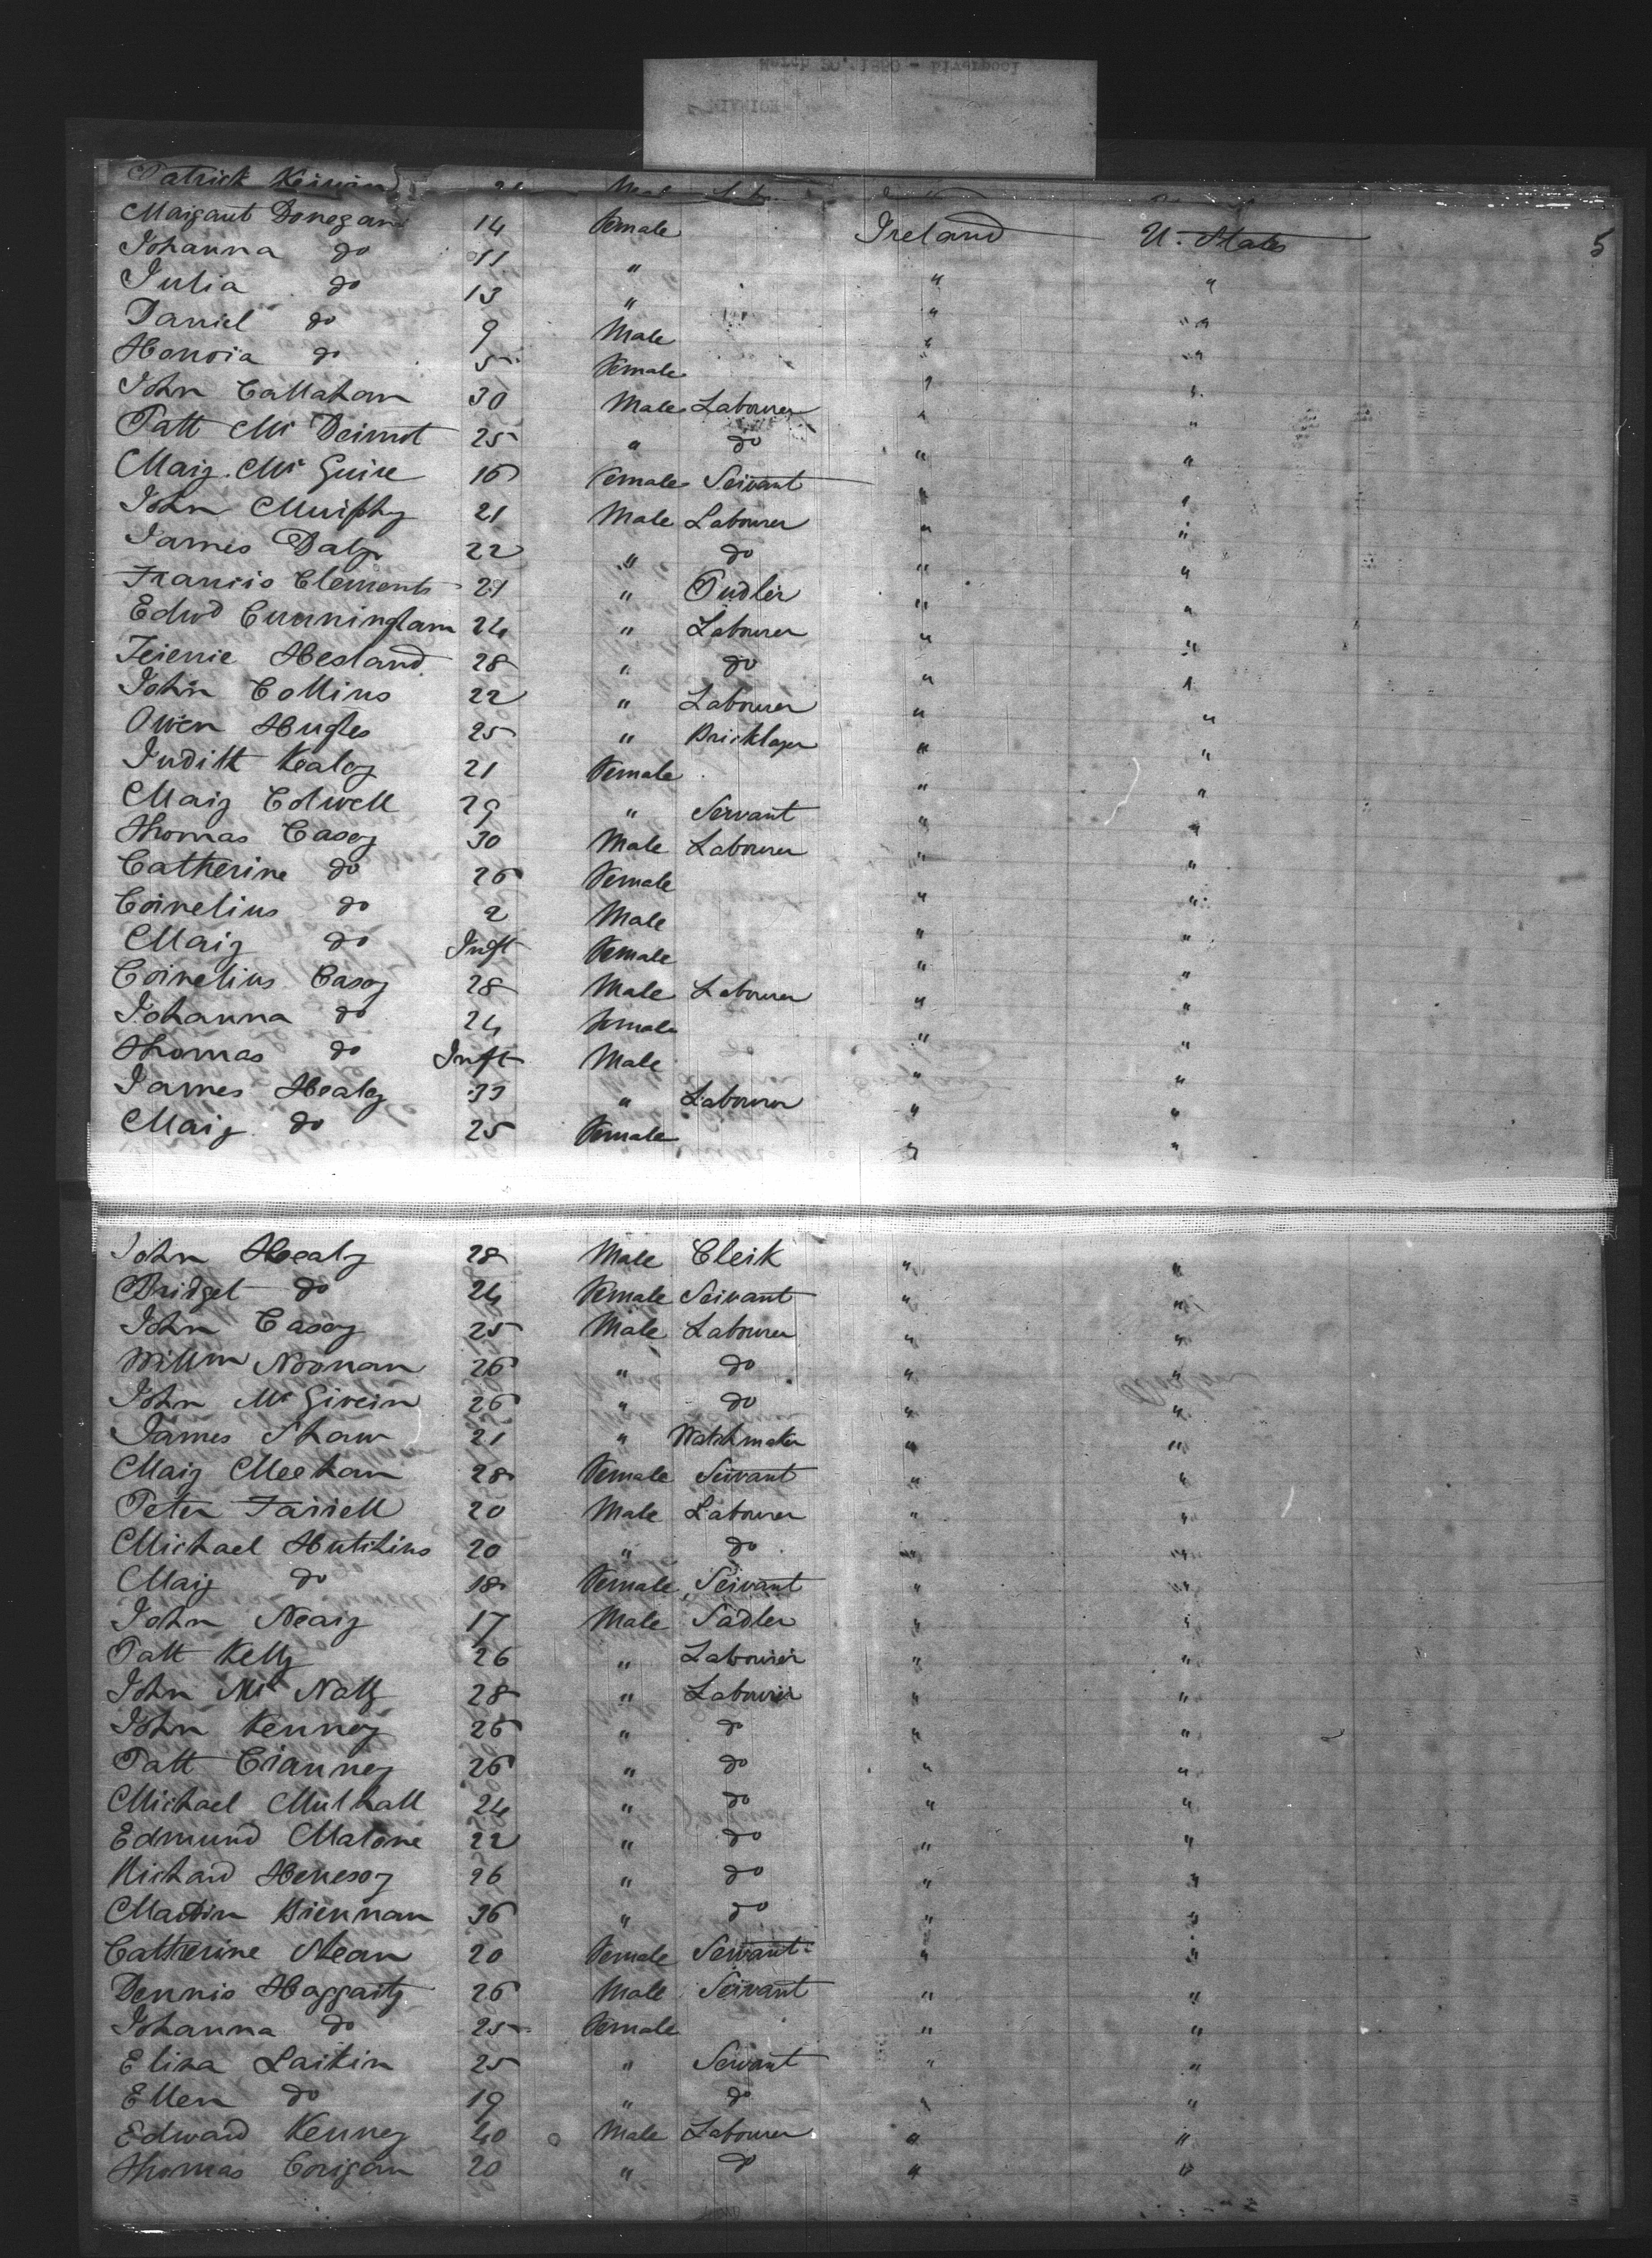 March 20, 1850 - Liverpool
Patrick Keirwin
Margaret Donegan 14 Female Ireland U. States 5
Johanna do 11 " " "
Julia do 13 " " "
Daniel do 9 Male " "
Honora do 5 Female " "
John Callaham 30 Male Labourer " "
Patt Mc Dermot 25 " do " "
Marg. Mc Guire 16 Female Servant " "
John Murphy 21 Male Labourer " "
James Daly 22 " do " "
Francis Clements 21 " Pudler " "
Edwd Cunningham 24 " Labourer " "
Hesland 28 " do " "
John Collins 22 " Labourer " "
Owen Hughes 25 " Bricklayer " "
Judith Kealey 21 Female " "
Marg Colwell 29 " Servant " "
Thomas Casey 30 Male Labourer " "
Catherine do 26 Female " "
Cornelius do 2 Male " "
Marg do Inft Female " "
Cornelius Casey 28 Male Labourer " "
Johanna do 24 Female " "
Thomas do Inft Male " "
James Healey 33 " Labourer " "
Marg do 25 Female " "
John Healy 28 Male Clerk " "
Bridget do 24 Female Servant " "
John Casey 25 Male Labourer " "
Willm Noonan 26 " do " "
John Mc Givern 26 " do " "
James Shaw 21 " Watchmaker " "
Marg Meehan 28 Female Servant " "
Peter Farrell 20 Male Labourer " "
Michael Hutchins 20 " do " "
Marg do 18 Female Servant " "
John Neary 17 Male Sadler " "
Patt Kelly 26 " Labourer " "
John Mc Nally 28 " Labourer " "
John Kenney 26 " do " "
Patt Cranney 26 " do " "
Michael Mulhall 24 " do " "
Edmund Malone 22 " do " "
Richard Henesey 26 " do " "
Martin Brennan 36 " do " "
Catherine Nean 20 Female Servant " "
Dennis Haggarty 26 Male Servant " "
Johanna do 25 Female " "
Eliza Larkin 25 " Servant " "
Ellen do 19 " do " "
Edward Kenney 40 Male Labourer " "
Thomas Corigan 20 " do " "